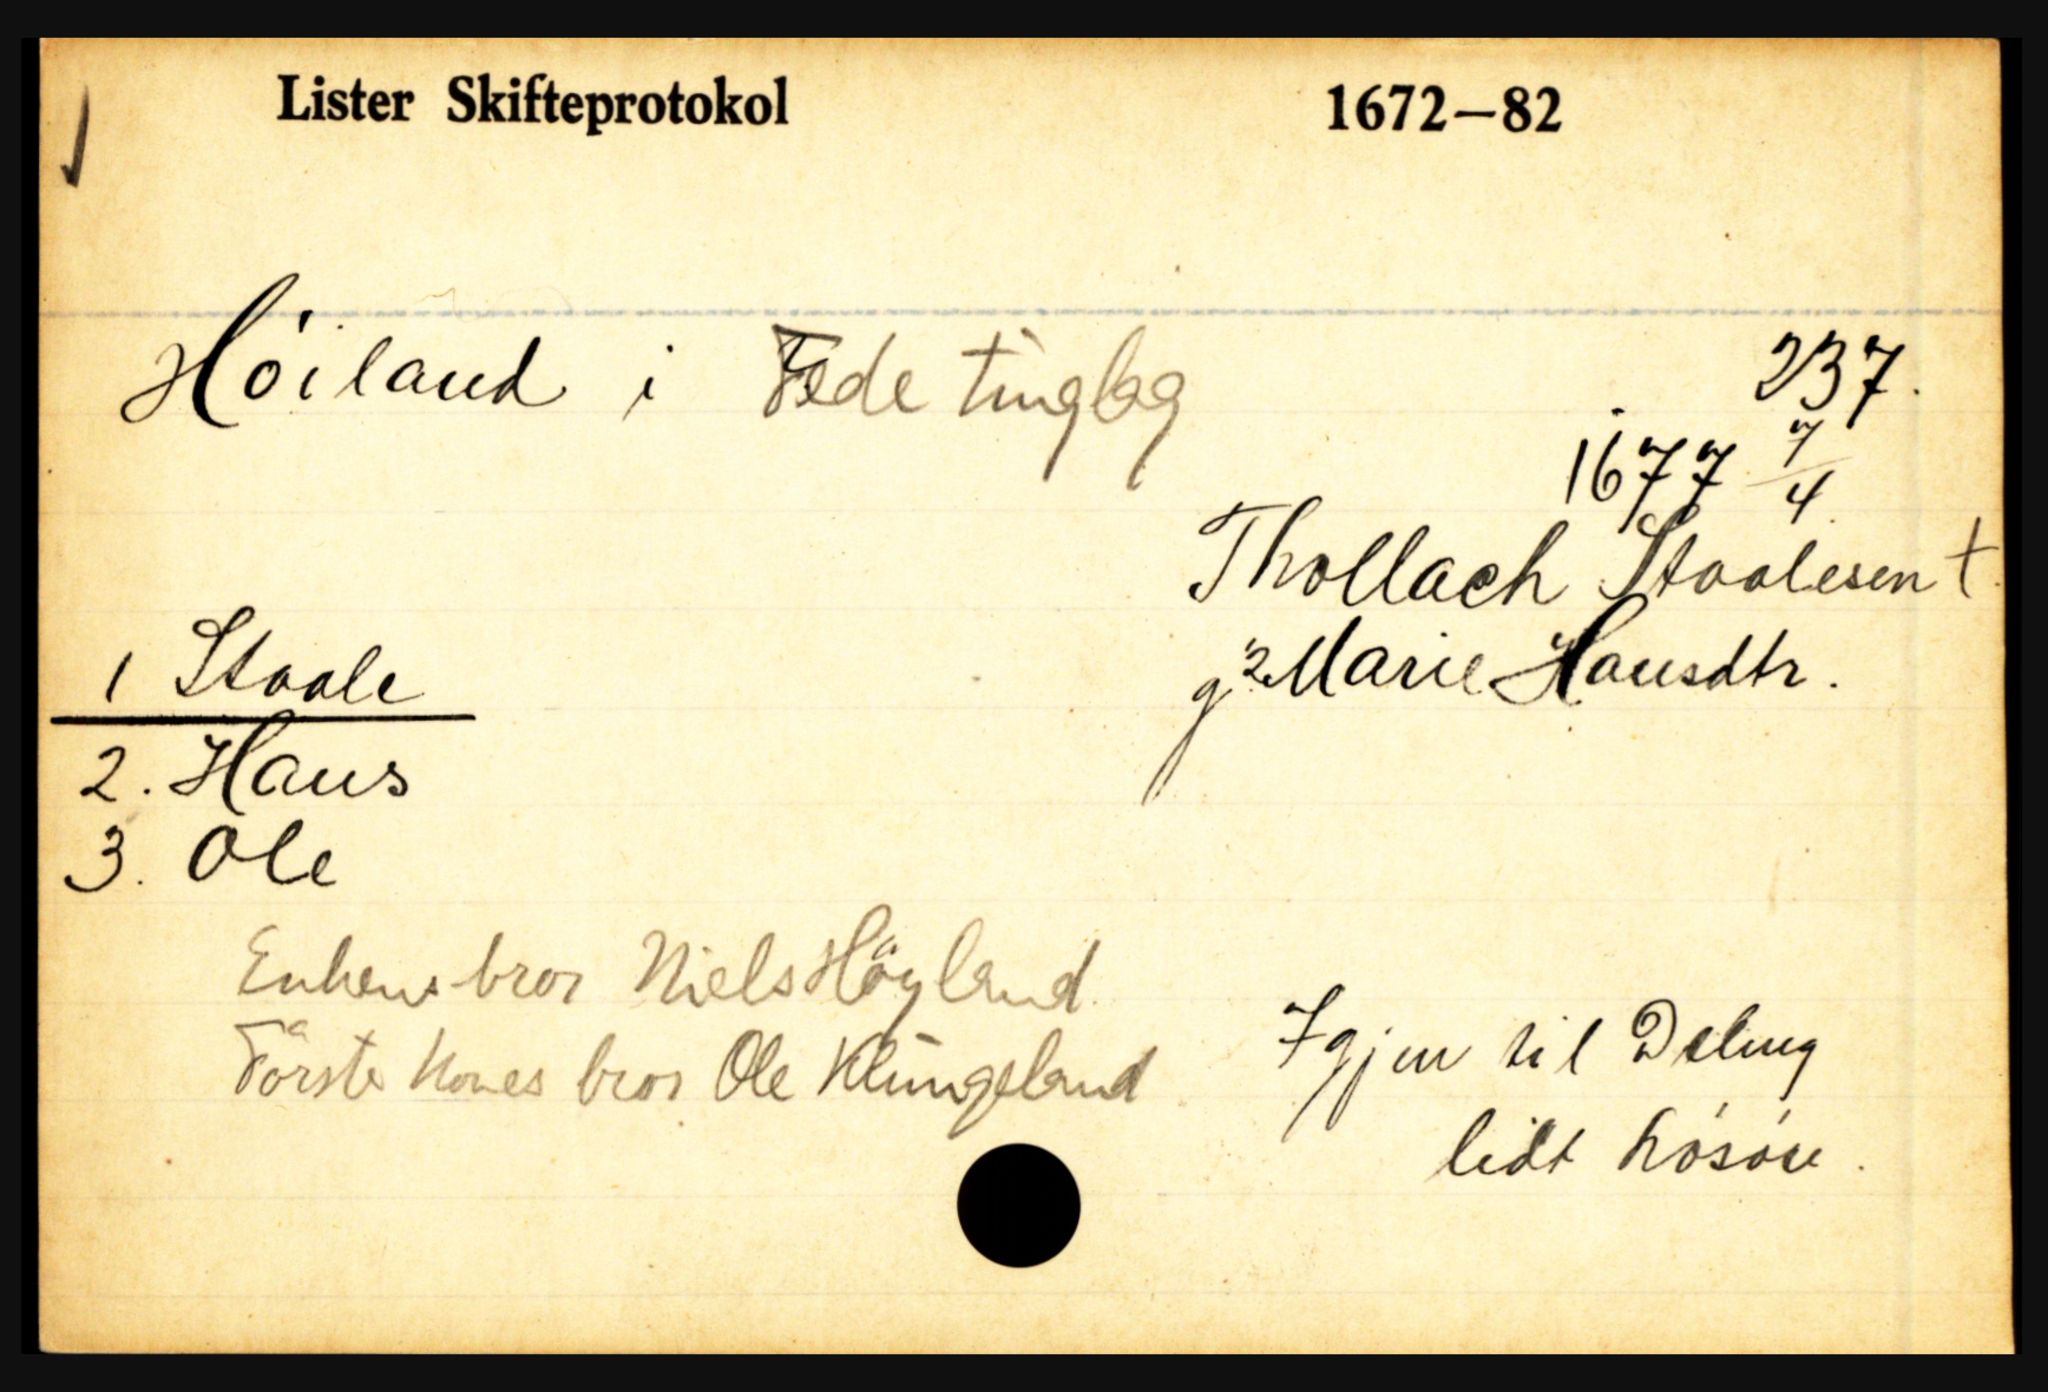 Lister Skifteprotokol 1672–82
Höiland i Fede tinglag
237.
1677 7/4.
Thollach Staalesen †.
g 2. Marie Hansdtr.
1 Staale
2. Hans
3. Ole
Enkens bror Niels Höyland
Förste Kones bror Ole Klungeland
Igjen til Deling
lidt lösöre.